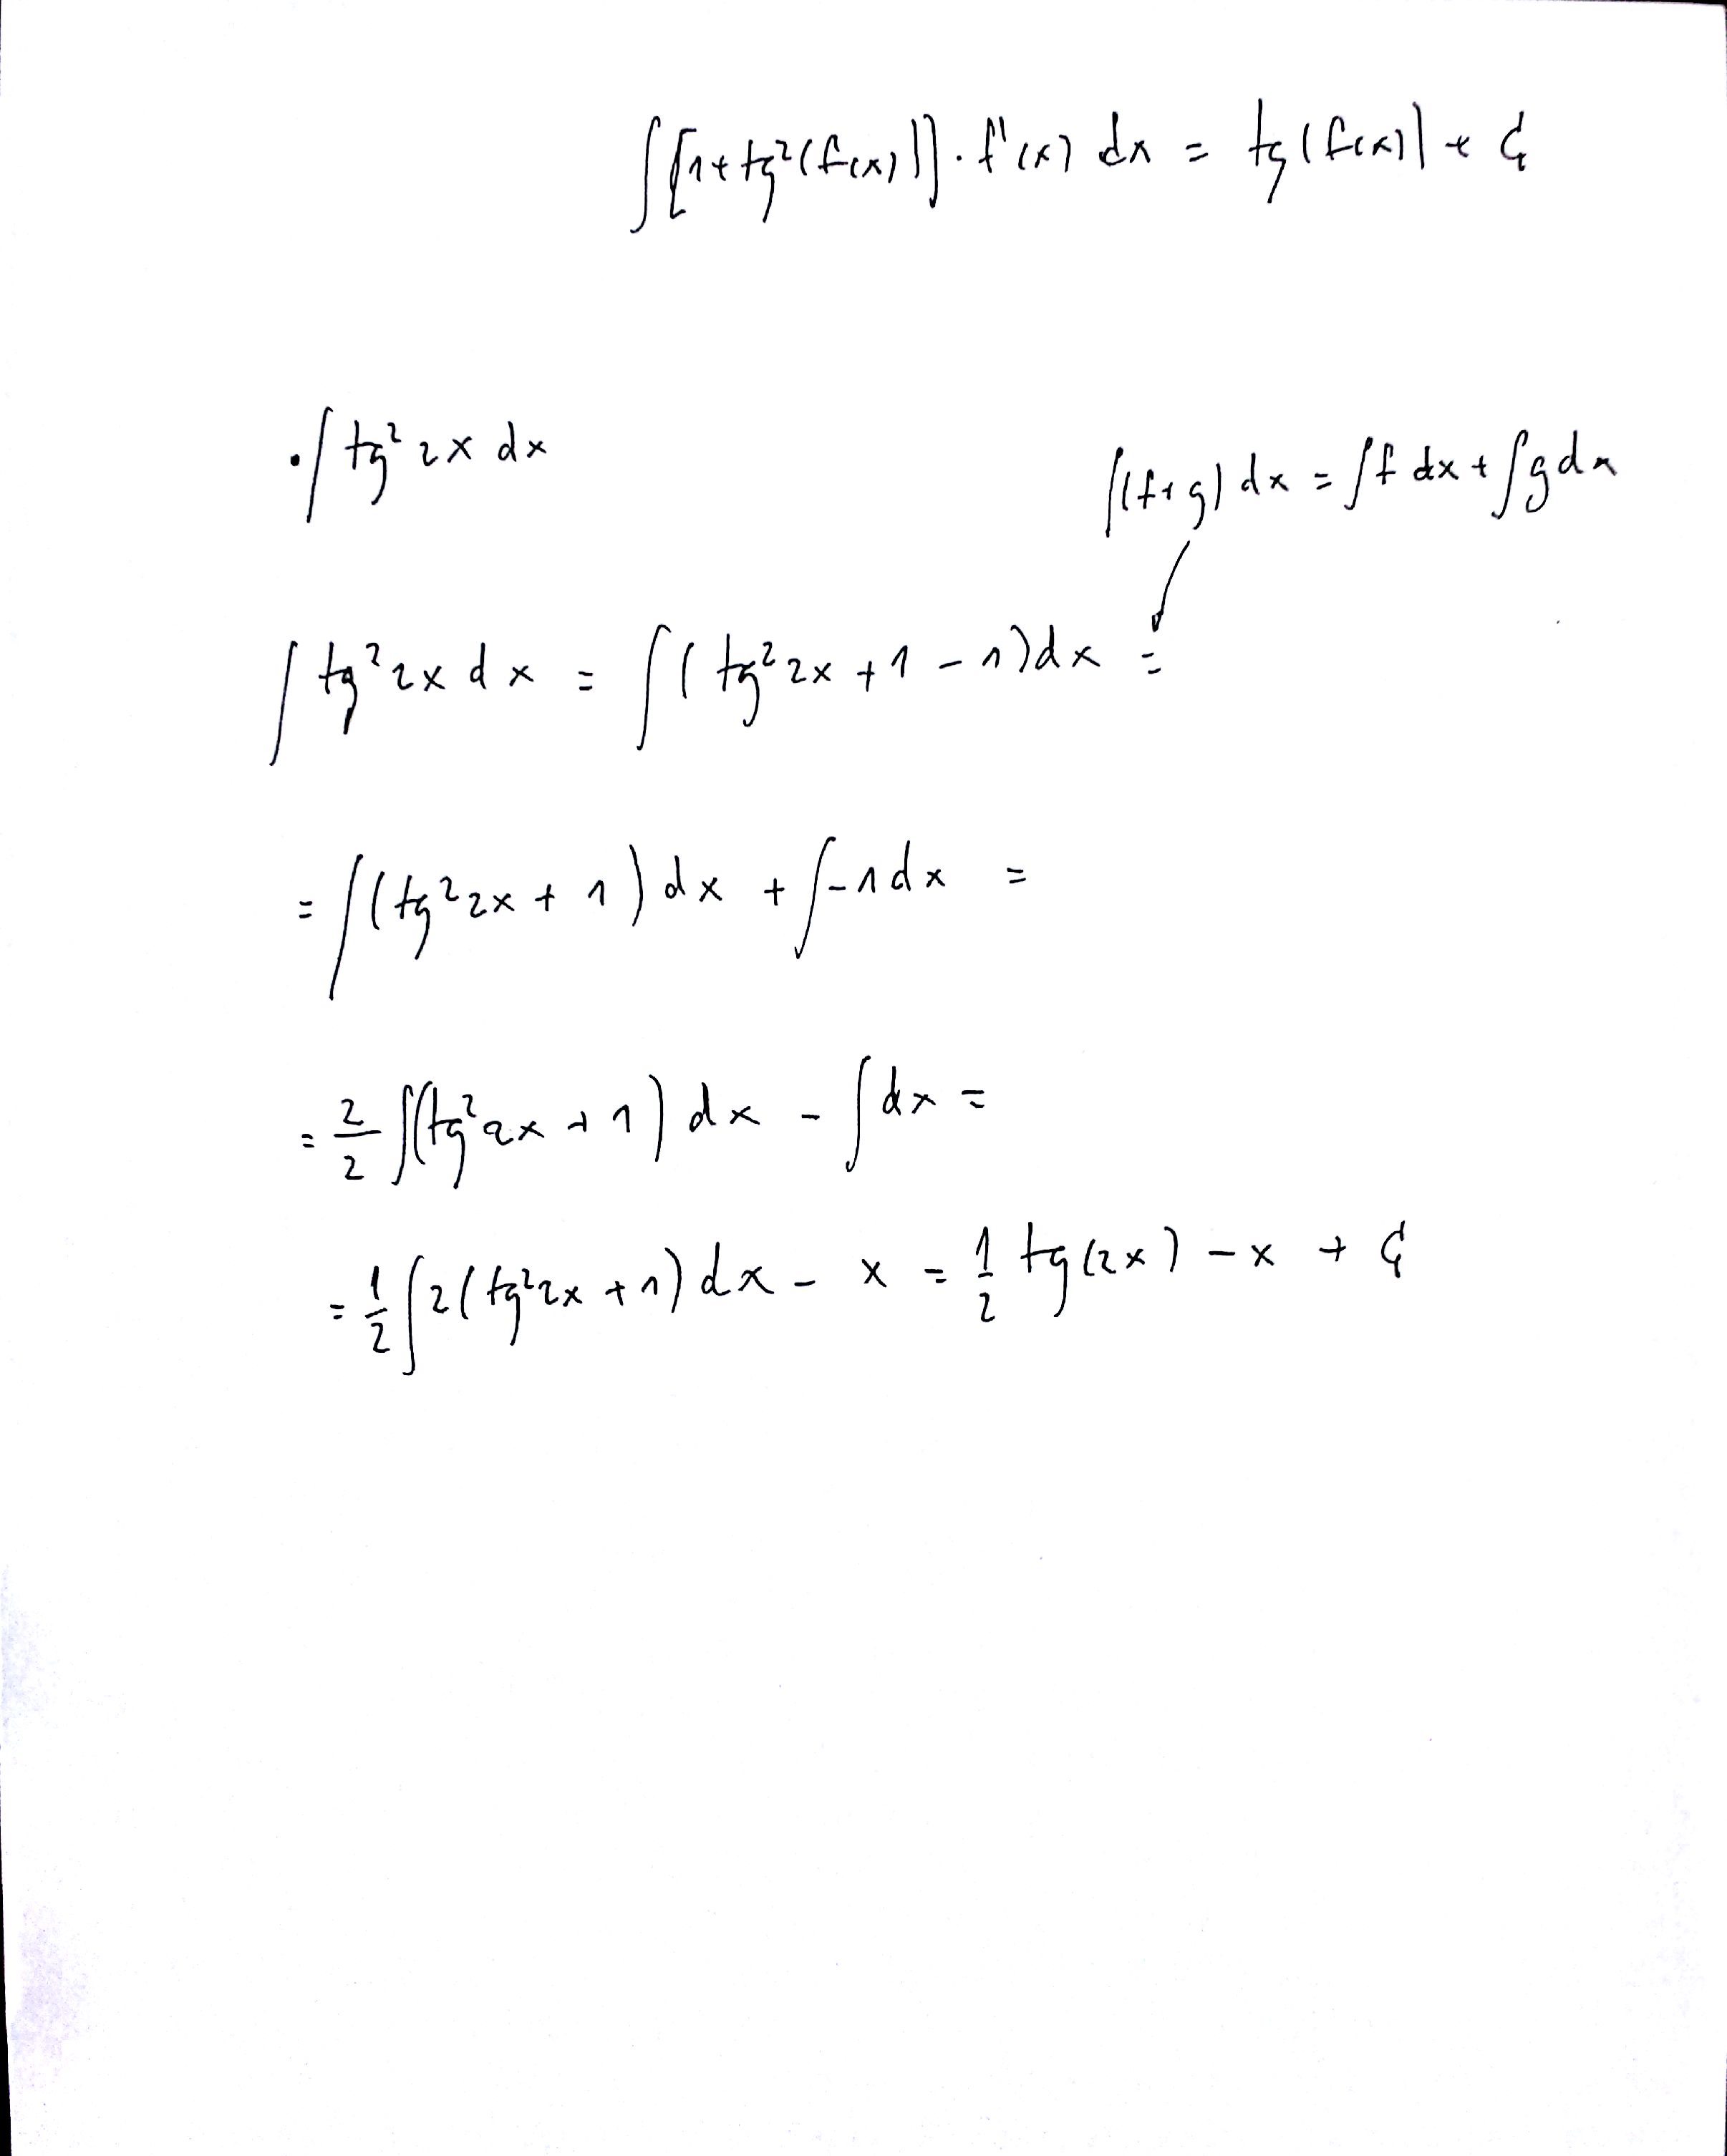 ∫[1+tg²(f(x))]·f'(x) dx = tg(f(x)) + C
·∫ tg² 2x dx
∫(f+g) dx = ∫f dx + ∫g dx
∫ tg² 2x dx = ∫( tg² 2x + 1 - 1)dx =
= ∫( tg² 2x + 1 ) dx + ∫-1dx =
= 2/2 ∫(tg² 2x + 1) dx - ∫dx =
= 1/2 ∫2( tg² 2x + 1) dx - x = 1/2 tg(2x) - x + C